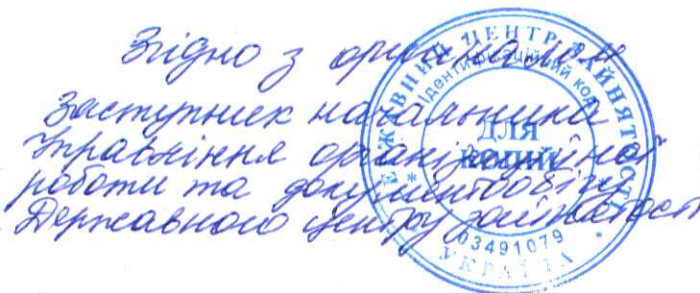 Згідно з оригіналом
Заступник начальника
Управління організаційної
роботи та документообігу
Державного центру зайнятості
ДЕРЖАВНИЙ ЦЕНТР ЗАЙНЯТОСТІ
Ідентифікаційний код
ДЛЯ
КОПІЙ
03491079
* УКРАЇНА *